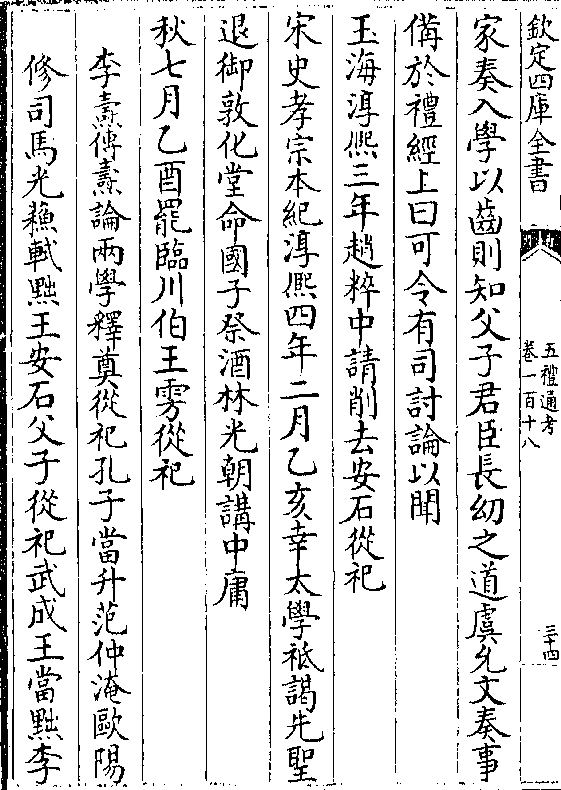 欽定四庫全書
五禮通考
卷一百十八
三十四
家奏入學以齒則知父子君臣長幼之道虞允文奏事
備於禮經上曰可令有司討論以聞
玉海淳熙三年趙粹中請削去安石從祀
宋史孝宗本紀淳熙四年二月乙亥幸太學祗謁先聖
退御敦化堂命國子祭酒林光朝講中庸
秋七月乙酉罷臨川伯王雱從祀
李燾傳燾論兩學釋奠從祀孔子當升范仲淹歐陽
修司馬光蘇軾黜王安石父子從祀武成王當黜李